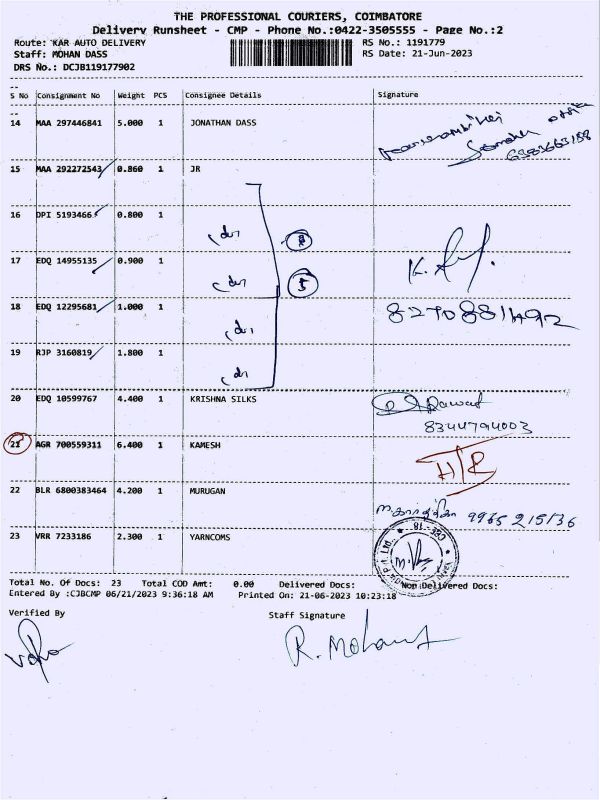 THE PROFESSIONAL COURIERS, COIMBATORE
Delivery Runsheet - CMP - Phone No.:0422-3505555 - Page No.:2
Route: KAR AUTO DELIVERY
RS No.: 1191779
Staff: MOHAN DASS
RS Date: 21-Jun-2023
DRS No.: DCJB119177902
S No Consignment No Weight PCS Consignee Details Signature
14 MAA 297446841 5.000 1 JONATHAN DASS
6383663188
15 MAA 292272543 0.860 1 JR
16 DPI 5193466 0.800 1
17 EDQ 14955135 0.900 1
5
18 EDQ 12295681 1.000 1
8270881492
19 RJP 3160819 1.800 1
20 EDQ 10599767 4.400 1 KRISHNA SILKS
8344794003
21 AGR 700559311 6.400 1 KAMESH
22 BLR 6800383464 4.200 1 MURUGAN
9965 215136
23 VRR 7233186 2.300 1 YARNCOMS
CBE - 18
Total No. Of Docs: 23 Total COD Amt: 0.00 Delivered Docs: Non Delivered Docs:
Entered By :CJBCMP 06/21/2023 9:36:18 AM Printed On: 21-06-2023 10:23:18
Verified By Staff Signature
R. Mohan